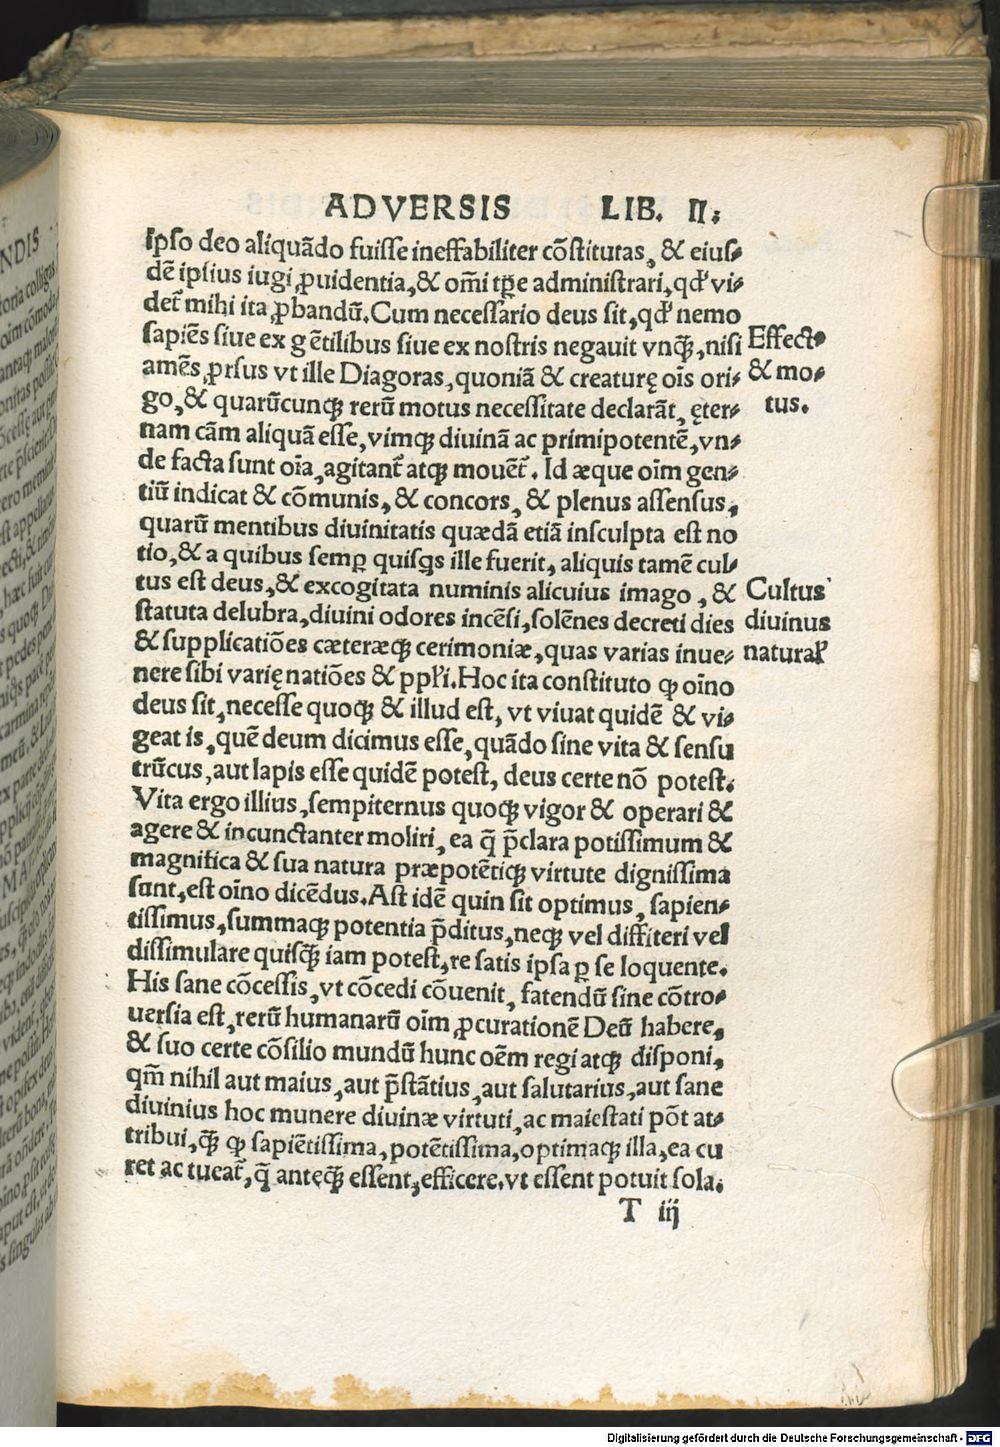 ADVERSIS LIB. II.
ipso deo aliquãdo fuisse ineffabiliter cõstitutas, & eius-
dẽ ipsius iugi ꝓuidentia, & om̃i tp̃e administrari, qđ vi-
det᷑ mihi ita ꝓbandũ. Cum necessario deus sit, qđ nemo
sapiẽs siue ex gẽtilibus siue ex nostris negauit vnq̃ꝫ, nisi
amẽs ꝓrsus vt ille Diagoras, quoniã & creaturę oĩs ori-
go, & quarũcunqꝫ rerũ motus necessitate declarãt, ęter-
nam cãm aliquã esse, vimqꝫ diuinã ac primipotentẽ, vn-
de facta sunt oĩa, agitant᷑ atqꝫ mouẽt᷑. Id æque oĩm gen-
tiũ indicat & cõmunis, & concors, & plenus assensus,
quarũ mentibus diuinitatis quædã etiã insculpta est no
tio, & a quibus semꝑ quisq̃s ille fuerit, aliquis tamẽ cul-
tus est deus, & excogitata numinis alicuius imago, &
statuta delubra, diuini odores incẽsi, solẽnes decreti dies
& supplicatiões cæteræqꝫ cerimoniæ, quas varias inue-
nere sibi varię natiões & ppl'i. Hoc ita constituto ꝙ oĩno
deus sit, necesse quoqꝫ & illud est, vt viuat quidẽ & vi-
geat is, quẽ deum dicimus esse, quãdo sine vita & sensu
trũcus, aut lapis esse quidẽ potest, deus certe nõ potest.
Vita ergo illius, sempiternus quoqꝫ vigor & operari &
agere & incunctanter moliri, ea q̃ p̃clara potissimum &
magnifica & sua natura præpotẽtiqꝫ virtute dignissima
sunt, est oĩno dicẽdus. Ast idẽ quin sit optimus, sapien-
tissimus, summaqꝫ potentia p̃ditus, neqꝫ vel diffiteri vel
dissimulare quisq̃ꝫ iam potest, re satis ipsa ꝑ se loquente.
His sane cõcessis, vt cõcedi cõuenit, fatendũ sine cõtro-
uersia est, rerũ humanarũ oĩm ꝓcurationẽ Deũ habere,
& suo certe cõsilio mundũ hunc oẽm regi atqꝫ disponi,
qm̃ nihil aut maius, aut p̃stãtius, aut salutarius, aut sane
diuinius hoc munere diuinæ virtuti, ac maiestati põt at-
tribui, q̃ꝫ ꝙ sapiẽtissima, potẽtissima, optimaqꝫ illa, ea cu
ret ac tueat᷑, q̃ anteq̃ꝫ essent, efficere, vt essent potuit sola.
T iij
Effect9
& mo-
tus.
Cultus
diuinus
naturaꝉ
NDIS
Digitalisierung gefördert durch die Deutsche Forschungsgemeinschaft - DFG